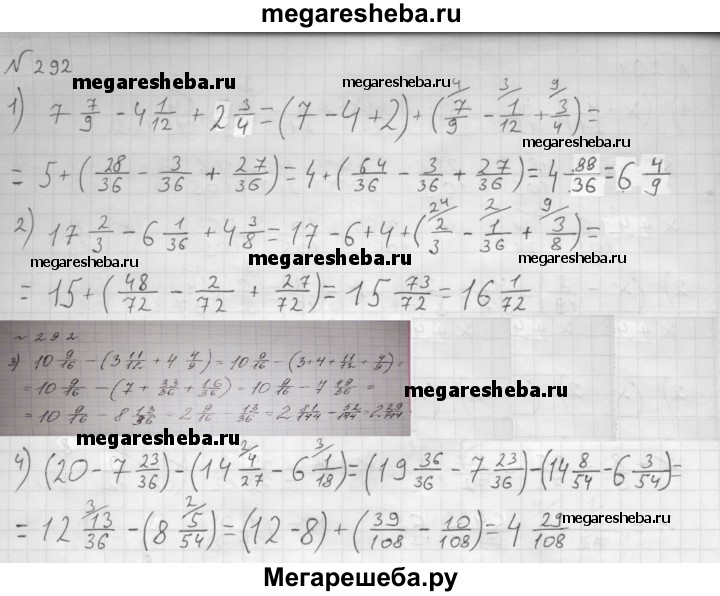 megaresheba.ru
№ 292
megaresheba.ru
megaresheba.ru
1) 7 7/9 - 4 1/12 + 2 3/4 = (7 - 4 + 2) + (4/ 7/9 - 3/ 1/12 + 9/ 3/4) =
megaresheba.ru
= 5 + (28/36 - 3/36 + 27/36) = 4 + (64/36 - 3/36 + 27/36) = 4 88/36 = 6 4/9
2) 17 2/3 - 6 1/36 + 4 3/8 = 17 - 6 + 4 + (24/ 2/3 - 2/ 1/36 + 9/ 3/8) =
megaresheba.ru
megaresheba.ru
megaresheba.ru
= 15 + (48/72 - 2/72 + 27/72) = 15 73/72 = 16 1/72
№ 292
3) 10 9/16 - (3 11/12 + 4 4/9) = 10 9/16 - (3 + 4 + 11/12 + 4/9) =
= 10 9/16 - (7 + 33/36 + 16/36) = 10 9/16 - 7 49/36 =
megaresheba.ru
= 10 9/16 - 8 13/36 = 2 9/16 - 13/36 = 2 81/144 - 52/144 = 2 29/144
4) (20 - 7 23/36) - (14 2/ 4/27 - 6 3/ 1/18) = (19 36/36 - 7 23/36) - (14 8/54 - 6 3/54) =
= 12 3/ 13/36 - (8 2/ 5/54) = (12 - 8) + (39/108 - 10/108) = 4 29/108
megaresheba.ru
Мегарешеба.ру